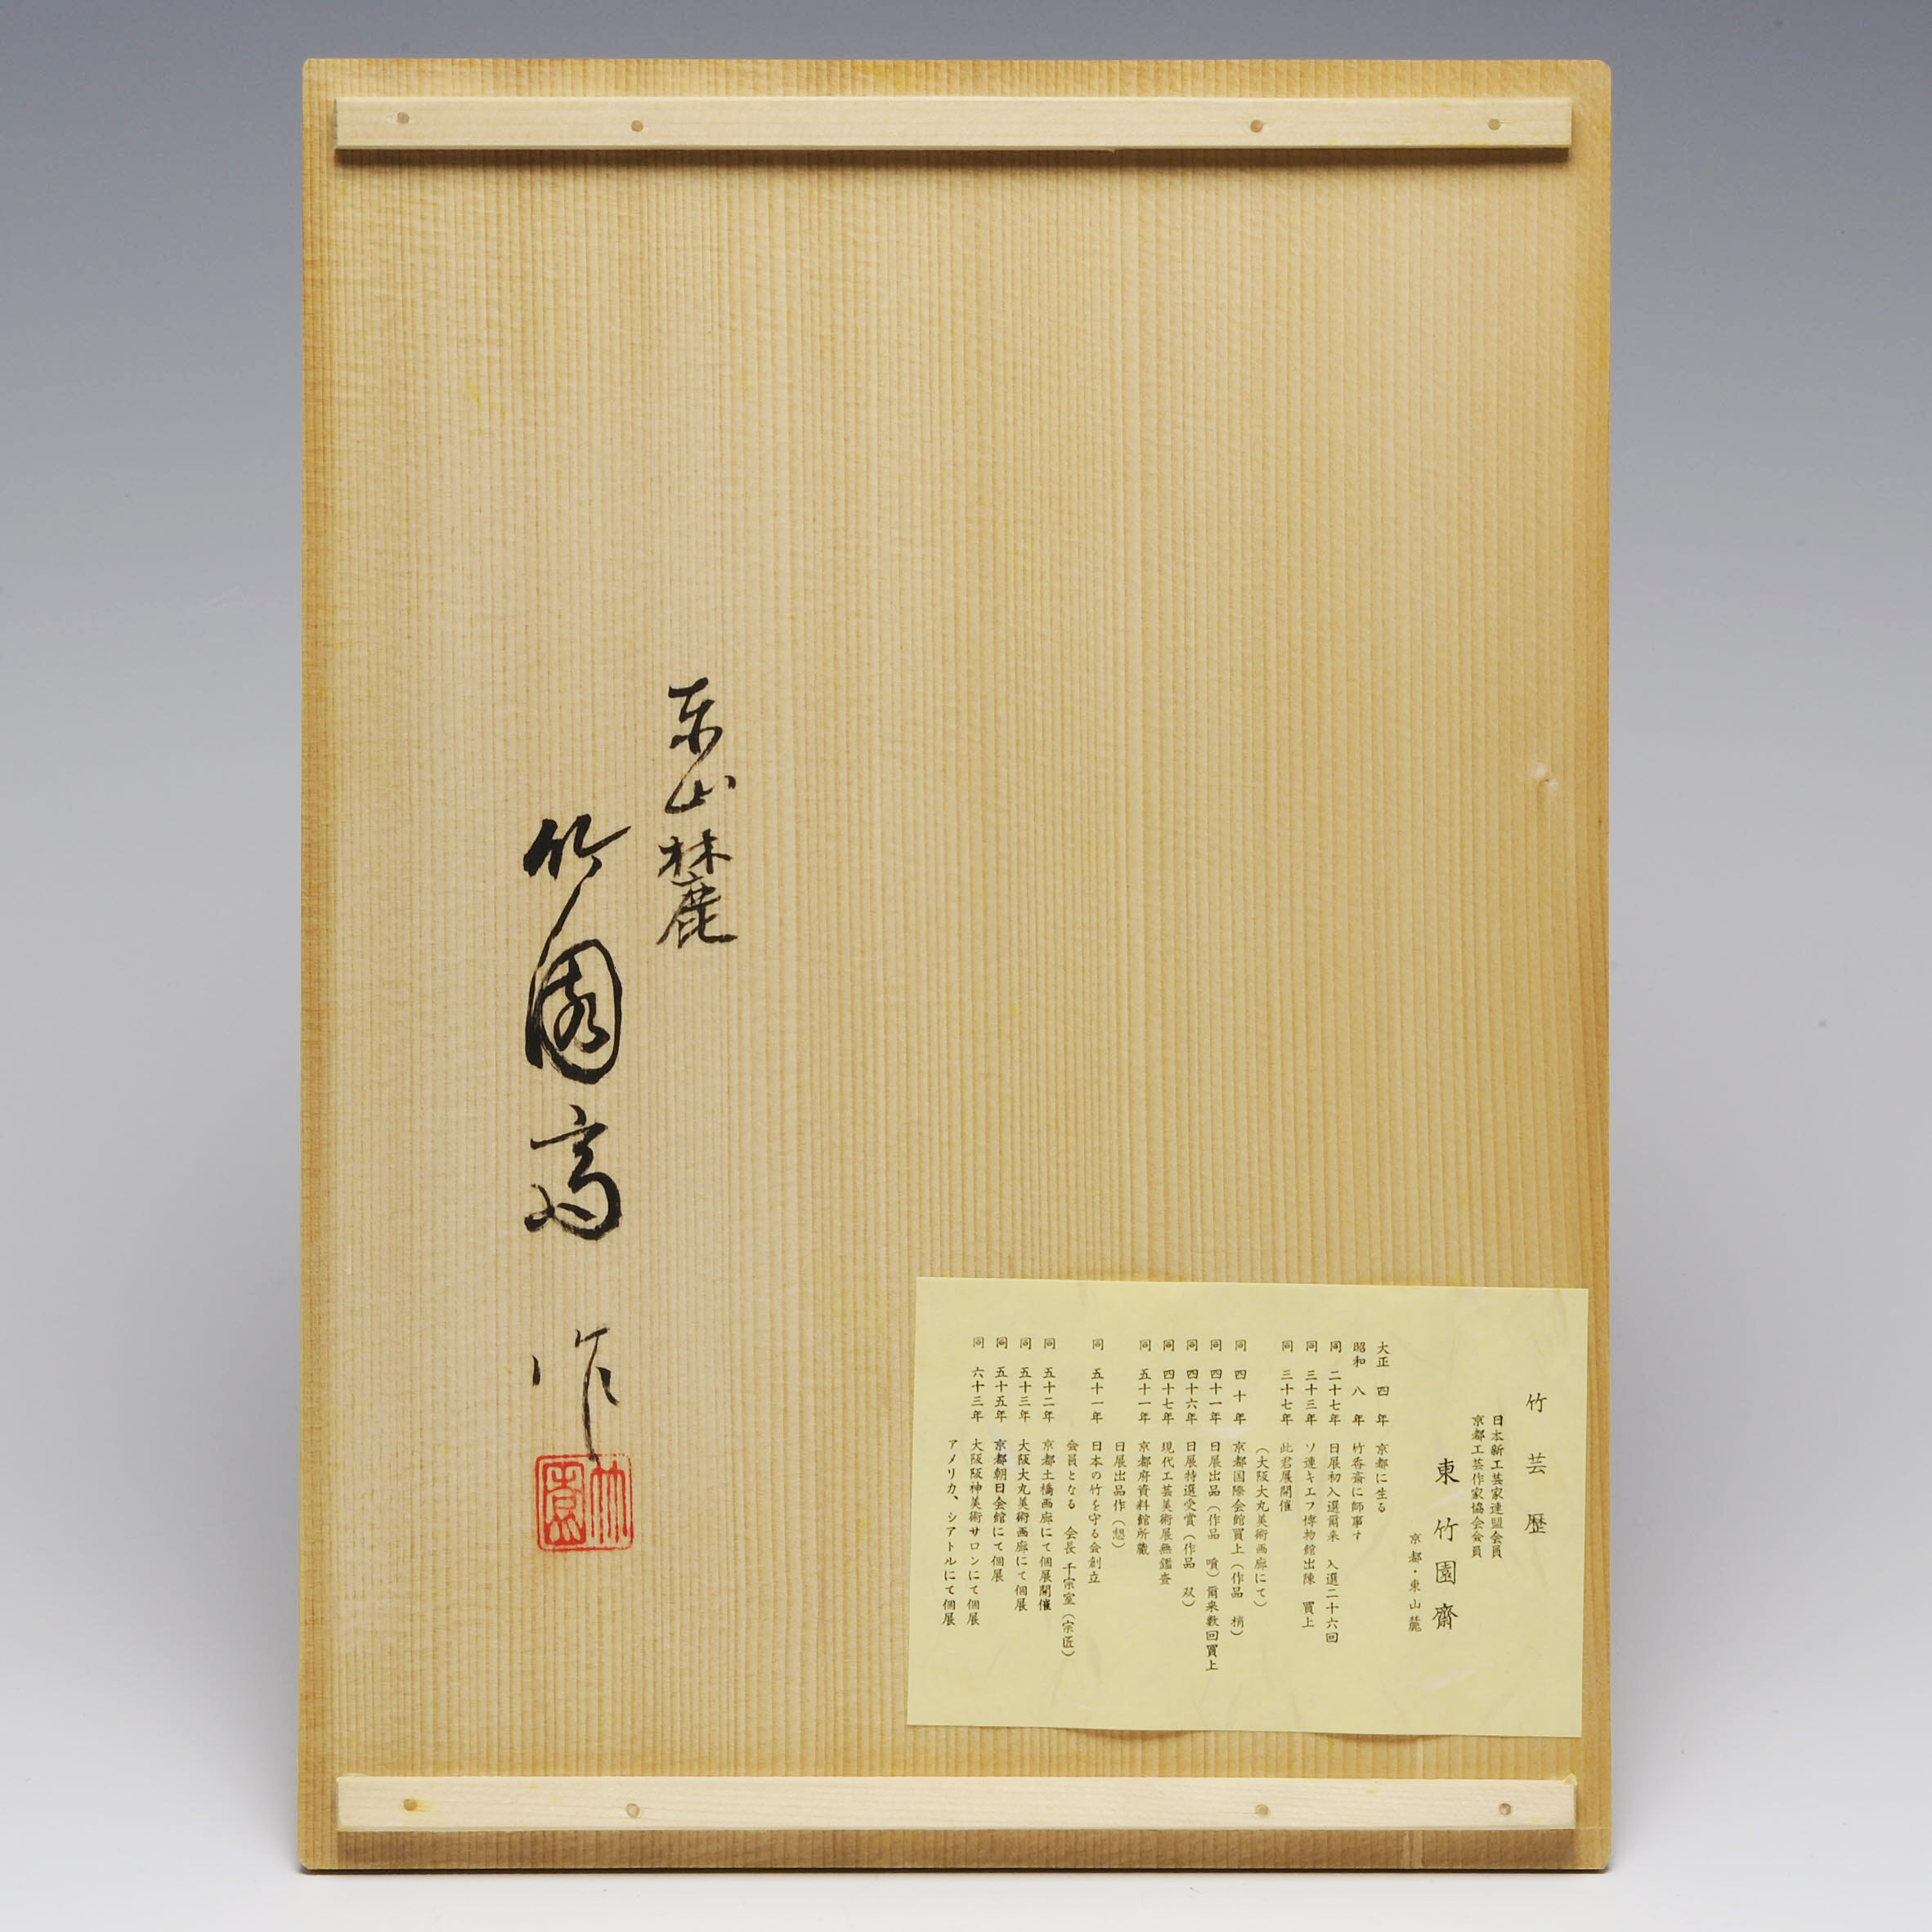 東山麓
竹園斎 作
竹園
竹芸歴
日本新工芸家連盟会員
京都工芸作家協会会員
東竹園齋
京都・東山麓
大正 四 年 京都に生る
昭和 八 年 竹香斎に師事す
同 二十七年 日展初入選爾来 入選二十六回
同 三十三年 ソ連キエフ博物館出陳 買上
同 三十七年 此君展開催
（大阪大丸美術画廊にて）
同 四 十 年 京都国際会館買上（作品 梢）
同 四十一年 日展出品（作品 噴）爾来数回買上
同 四十六年 日展特選受賞（作品 双）
同 四十七年 現代工芸美術展無鑑査
同 五十一年 京都府資料館所蔵
日展出品作（想）
同 五十一年 日本の竹を守る会創立
会員となる 会長 千宗室（宗匠）
同 五十二年 京都土橋画廊にて個展開催
同 五十三年 大阪大丸美術画廊にて個展
同 五十五年 京都朝日会館にて個展
同 六十三年 大阪阪神美術サロンにて個展
アメリカ、シアトルにて個展